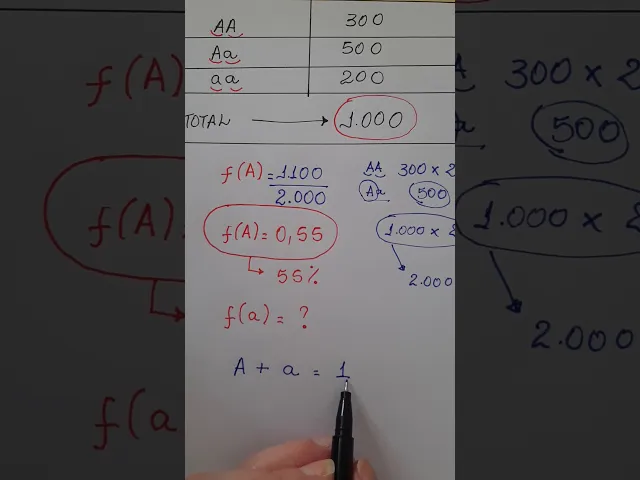 AA 300
Aa 500
aa 200
TOTAL → 1.000
f(A) = 1100 / 2.000
AA 300 x 2
Aa 500
f(A) = 0,55
1.000 x 2
→ 55%
2.000
f(a) = ?
A + a = 1